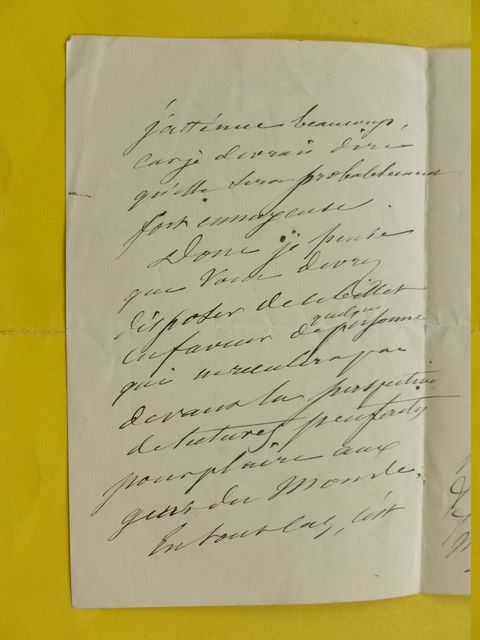 j'atténue beaucoup,
car je devrais dire
qu'elle sera probablement
fort ennuyeuse.
Donc je pense
que vous devez
disposer de ce billet
en faveur de quelque personne
qui ne recule pas
devant la perspective
de lectures peu faites
pour plaire aux
gens du Monde.
En tout cas, c'est